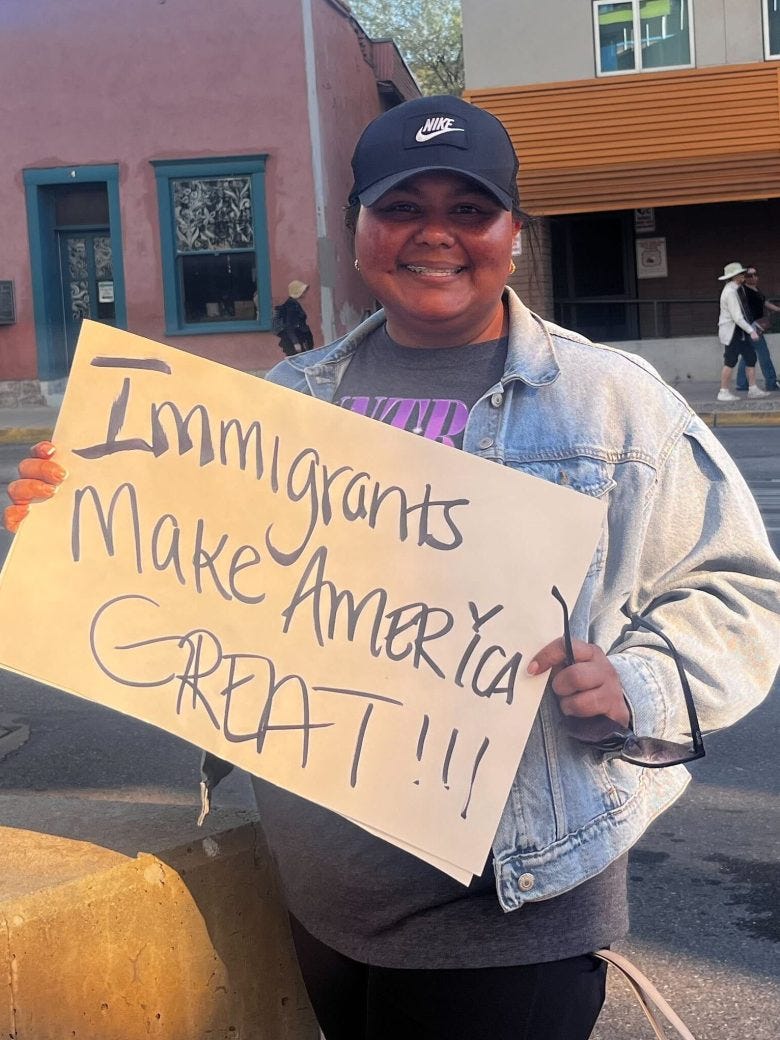 NIKE
NTR
Immigrants
Make AMERICA
GREAT!!!